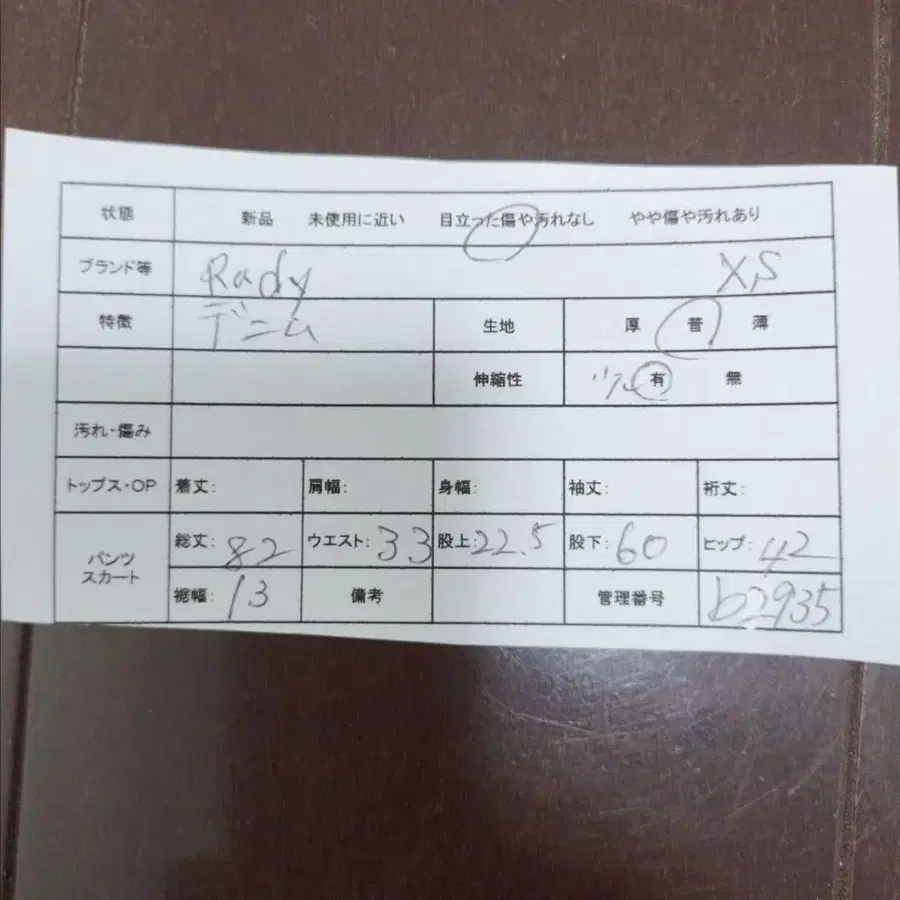 状態 新品 未使用に近い 目立った傷や汚れなし やや傷や汚れあり
ブランド等 Rady XS
特徴 デニム 生地 厚 普 薄
伸縮性 有 無
汚れ・傷み
トップス・OP 着丈: 肩幅: 身幅: 袖丈: 裄丈:
パンツ スカート 総丈: 82 ウエスト: 33 股上: 22.5 股下: 60 ヒップ: 42
裾幅: 13 備考 管理番号 b2935